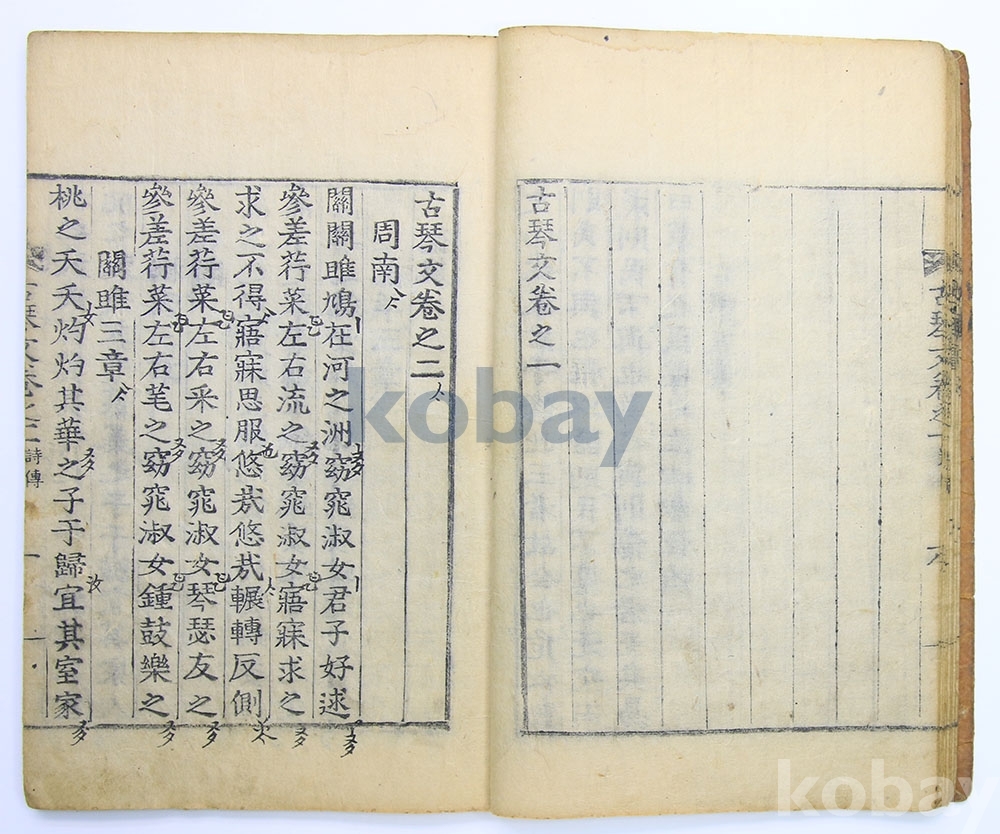 古琴文卷之一
古琴文卷之二
周南
關關雎鳩在河之洲窈窕淑女君子好逑
參差荇菜左右流之窈窕淑女寤寐求之
求之不得寤寐思服悠哉悠哉輾轉反側
參差荇菜左右采之窈窕淑女琴瑟友之
參差荇菜左右芼之窈窕淑女鍾鼓樂之
關雎三章
桃之夭夭灼灼其華之子于歸宜其室家
詩傳
kobay
kobay